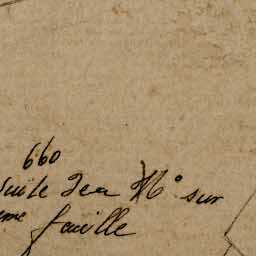 660
Suite des N° sur
eme feuille